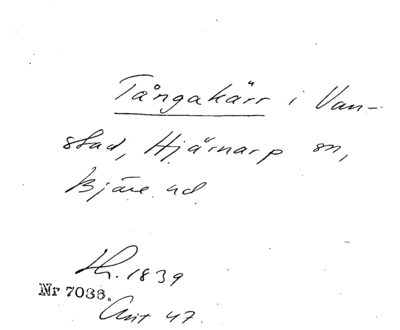 Tångakärr i Van-
stad, Hjärnarp sn,
Bjäre hd
Lh. 1839
Nr 7036.
Avit 47.